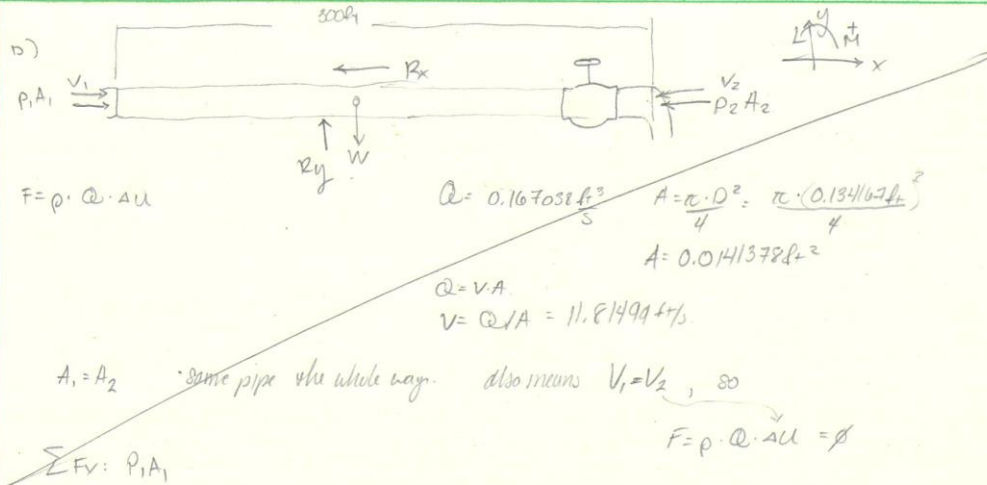 300ft
D)
L y M +
x
Rx
V1
P1A1
V2
P2A2
Ry W
F=ρ·Q·Δu
Q= 0.167038 ft³/s
A=π·D²/4 = π·(0.134167ft)²/4
A= 0.0141378ft²
Q=V·A
V=Q/A = 11.81499 ft/s
A1=A2 ·same pipe the whole way. also means V1=V2, so
F=ρ·Q·Δu = ∅
∑Fx: P1A1